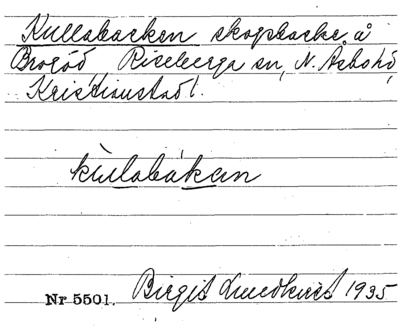 Kullabacken skogsbacke å
Brogöd Riseberga sn, N. Åsbo hd,
Kristianstad l.
kùlabákan
Nr 5501. Birgit Lundkvist 1935